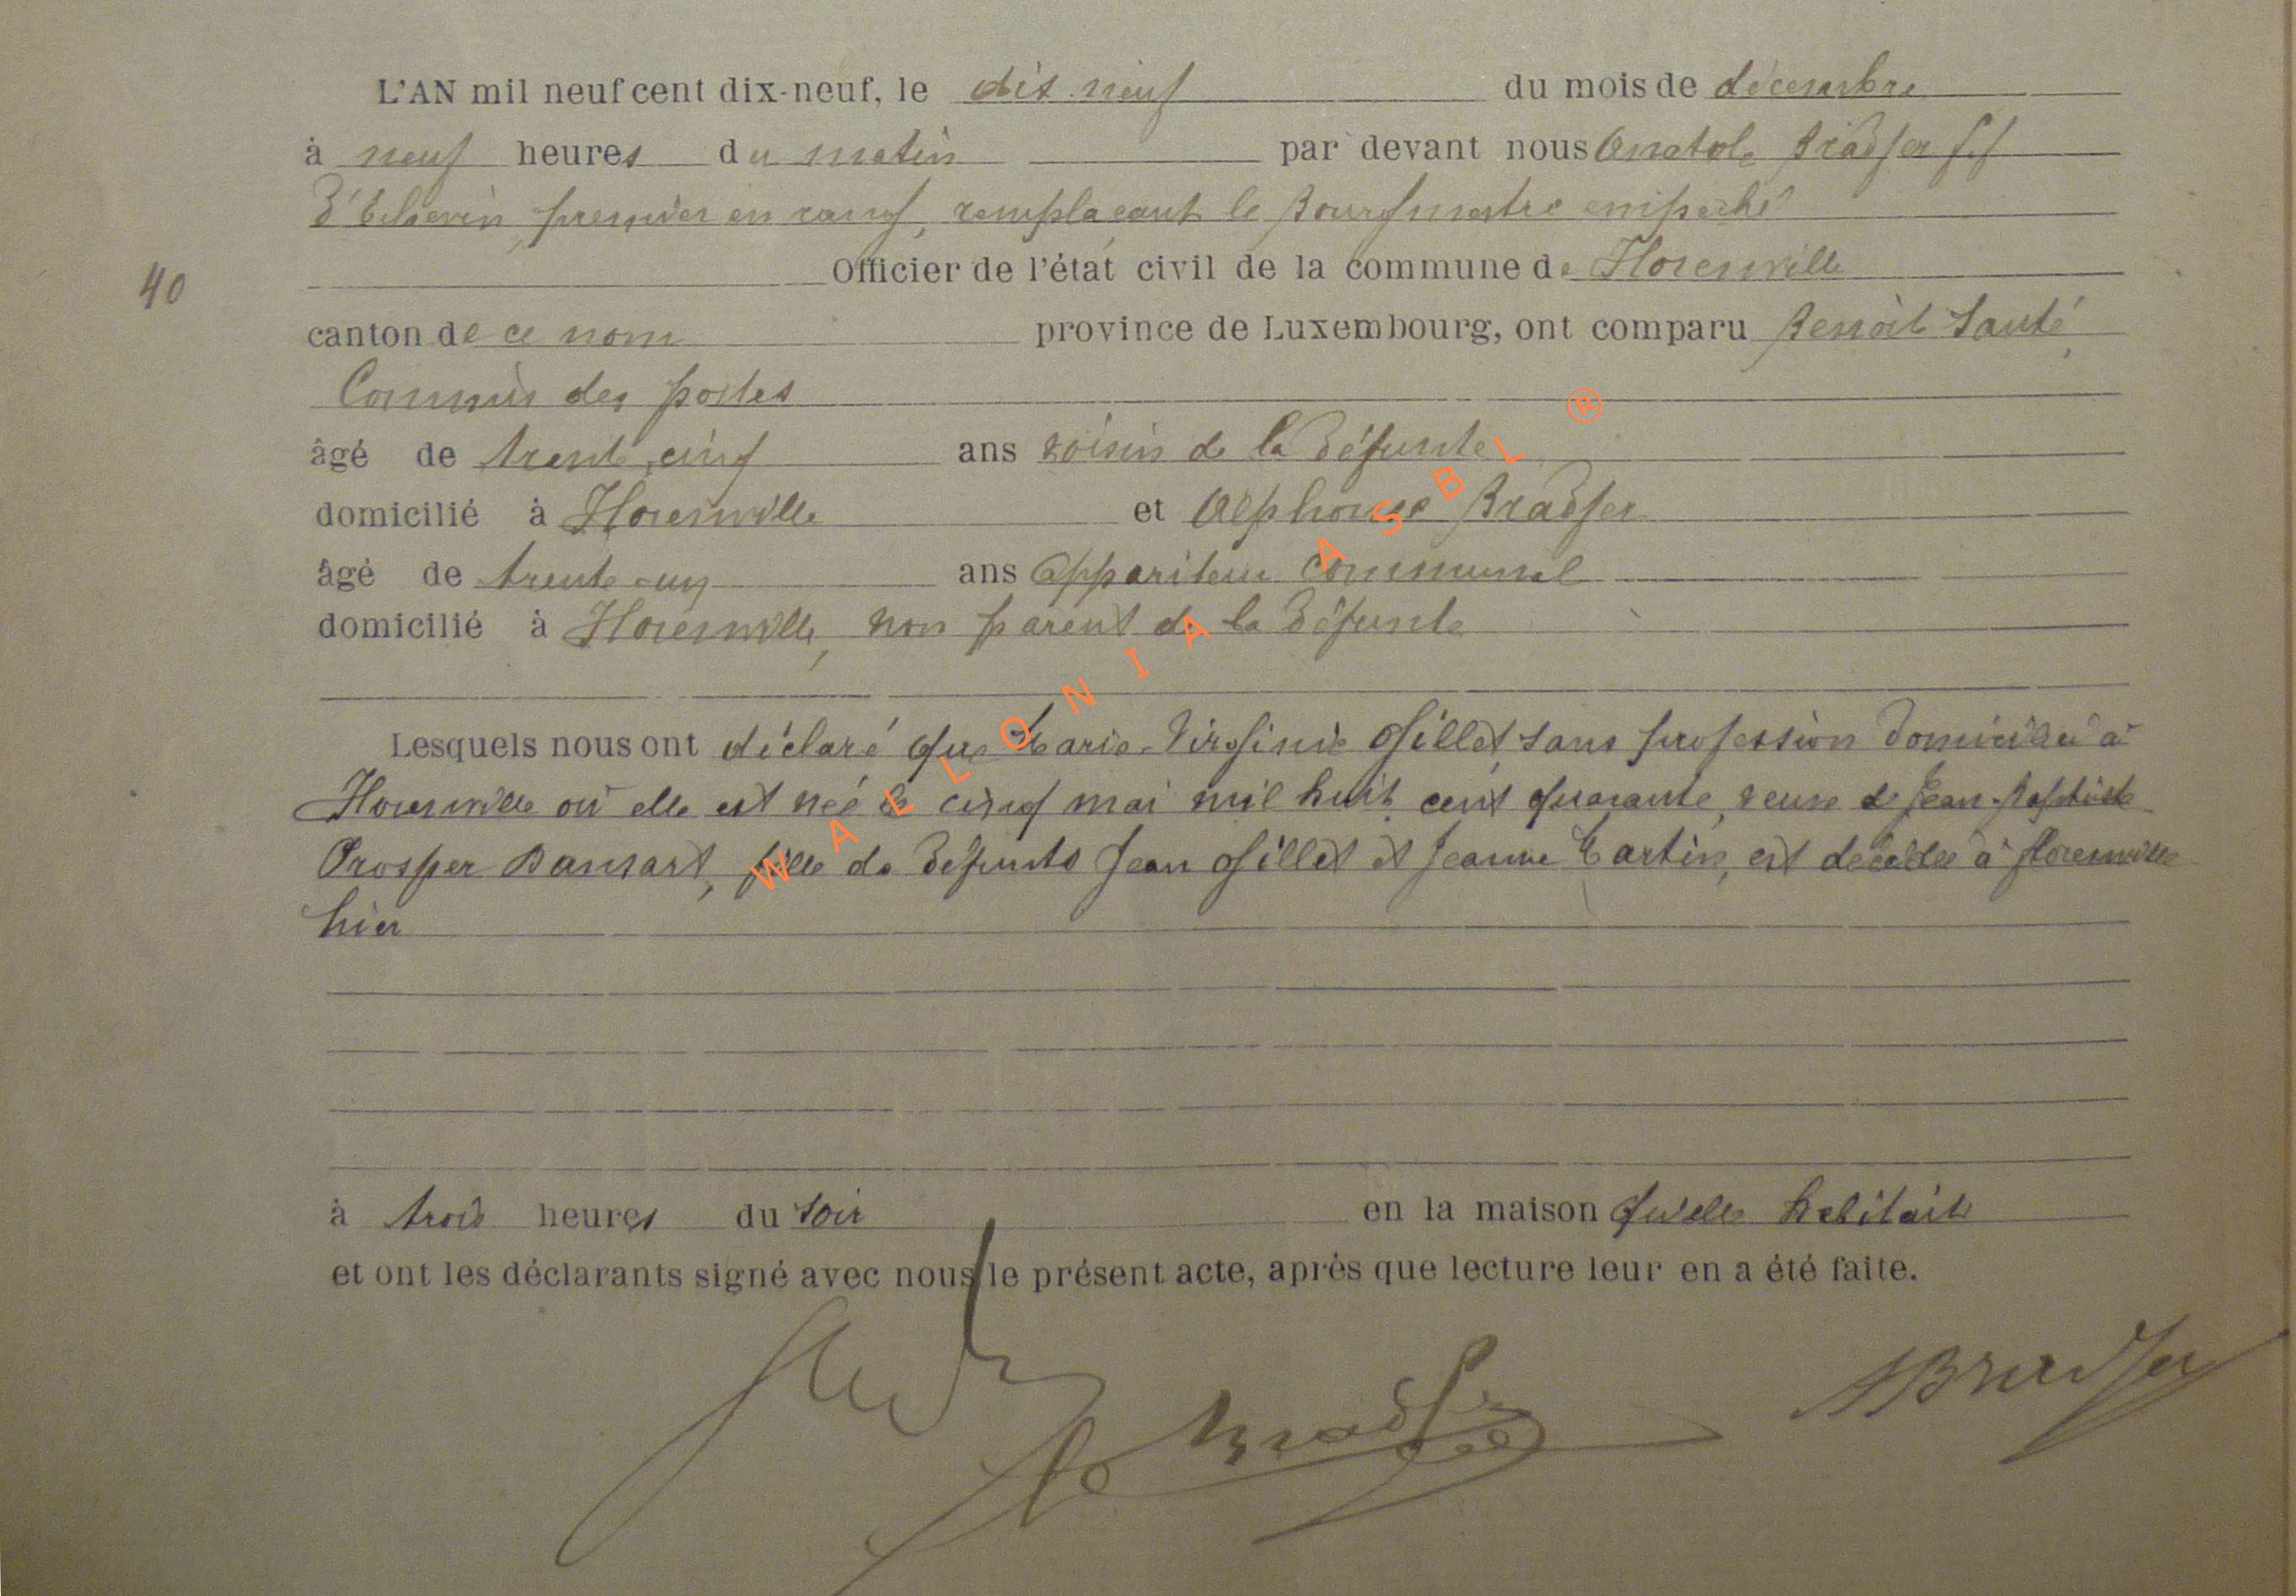 L'AN mil neuf cent dix-neuf, le dix-neuf du mois de décembre
à neuf heures du matin par devant nous Anatole Bradfer f.f
d'Echevin, premier en rang, remplaçant le Bourgmestre empêché
Officier de l'état civil de la commune de Florenville
40
canton de ce nom province de Luxembourg, ont comparu Benoit Santé,
Commis des postes
âgé de trente cinq ans voisin de la défunte
domicilié à Florenville et Alphonse Bradfer
âgé de trente-un ans appariteur communal
domicilié à Florenville, non parent de la défunte
Lesquels nous ont déclaré que Marie-Virginie Gillet, sans profession domiciliée à
Florenville où elle est née le cinq mai mil huit cent quarante, veuve de Jean-Baptiste
Prosper Dansart, fille de défunts Jean Gillet et Jeanne Martin, est décédée à Florenville
hier
à trois heures du soir en la maison qu'elle habitait
et ont les déclarants signé avec nous le présent acte, après que lecture leur en a été faite.
Bradfer ABradfer
WALLONIA ASBL ®